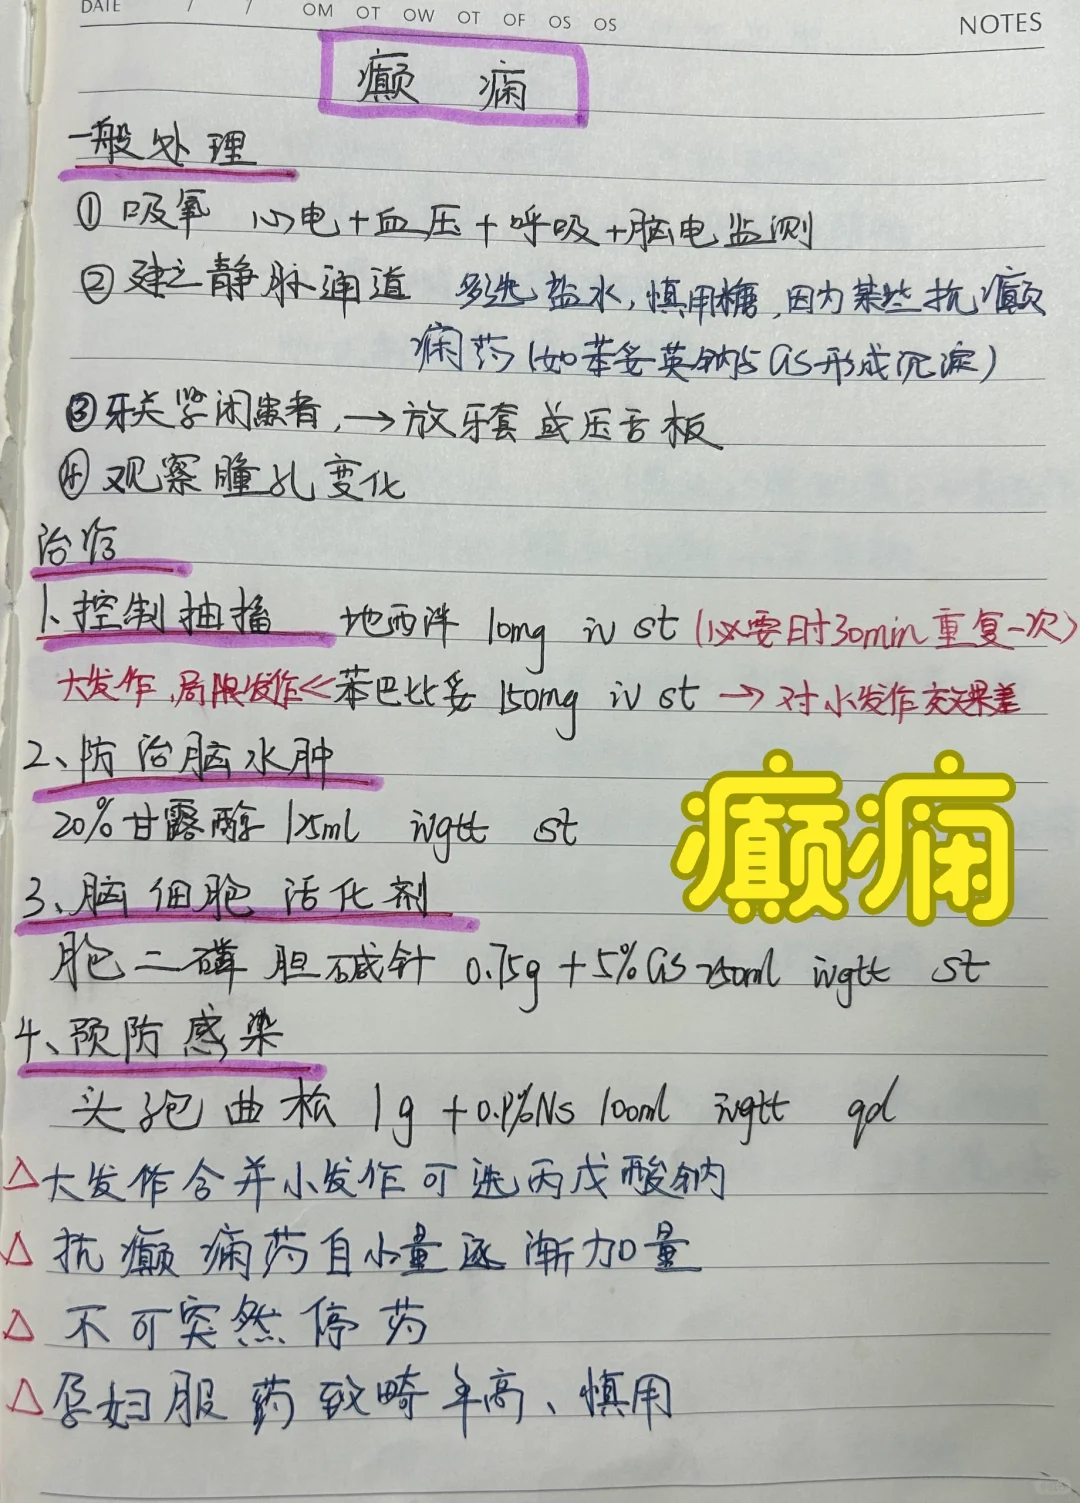 DATE / / OM OT OW OT OF OS OS NOTES
癫 痫
一般处理
① 吸氧 心电+血压+呼吸+脑电监测
② 建立静脉通道 多选盐水,慎用糖,因为某些抗癫
痫药(如苯妥英钠与GS形成沉淀)
③牙关紧闭患者,→放牙套或压舌板
④观察瞳孔变化
治疗
1.控制抽搐 地西泮 10mg iv st (必要时30min重复一次)
大发作,局限发作≪苯巴比妥 150mg iv st →对小发作效果差
2、防治脑水肿
20%甘露醇 125ml ivgtt st
癫痫
3、脑细胞活化剂
胞二磷胆碱针 0.75g+5%GS 250ml ivgtt st
4、预防感染
头孢曲松 1g+0.9%NS 100ml ivgtt qd
△大发作合并小发作可选丙戊酸钠
△ 抗癫痫药自小量逐渐加量
△ 不可突然停药
△ 孕妇服药致畸率高、慎用